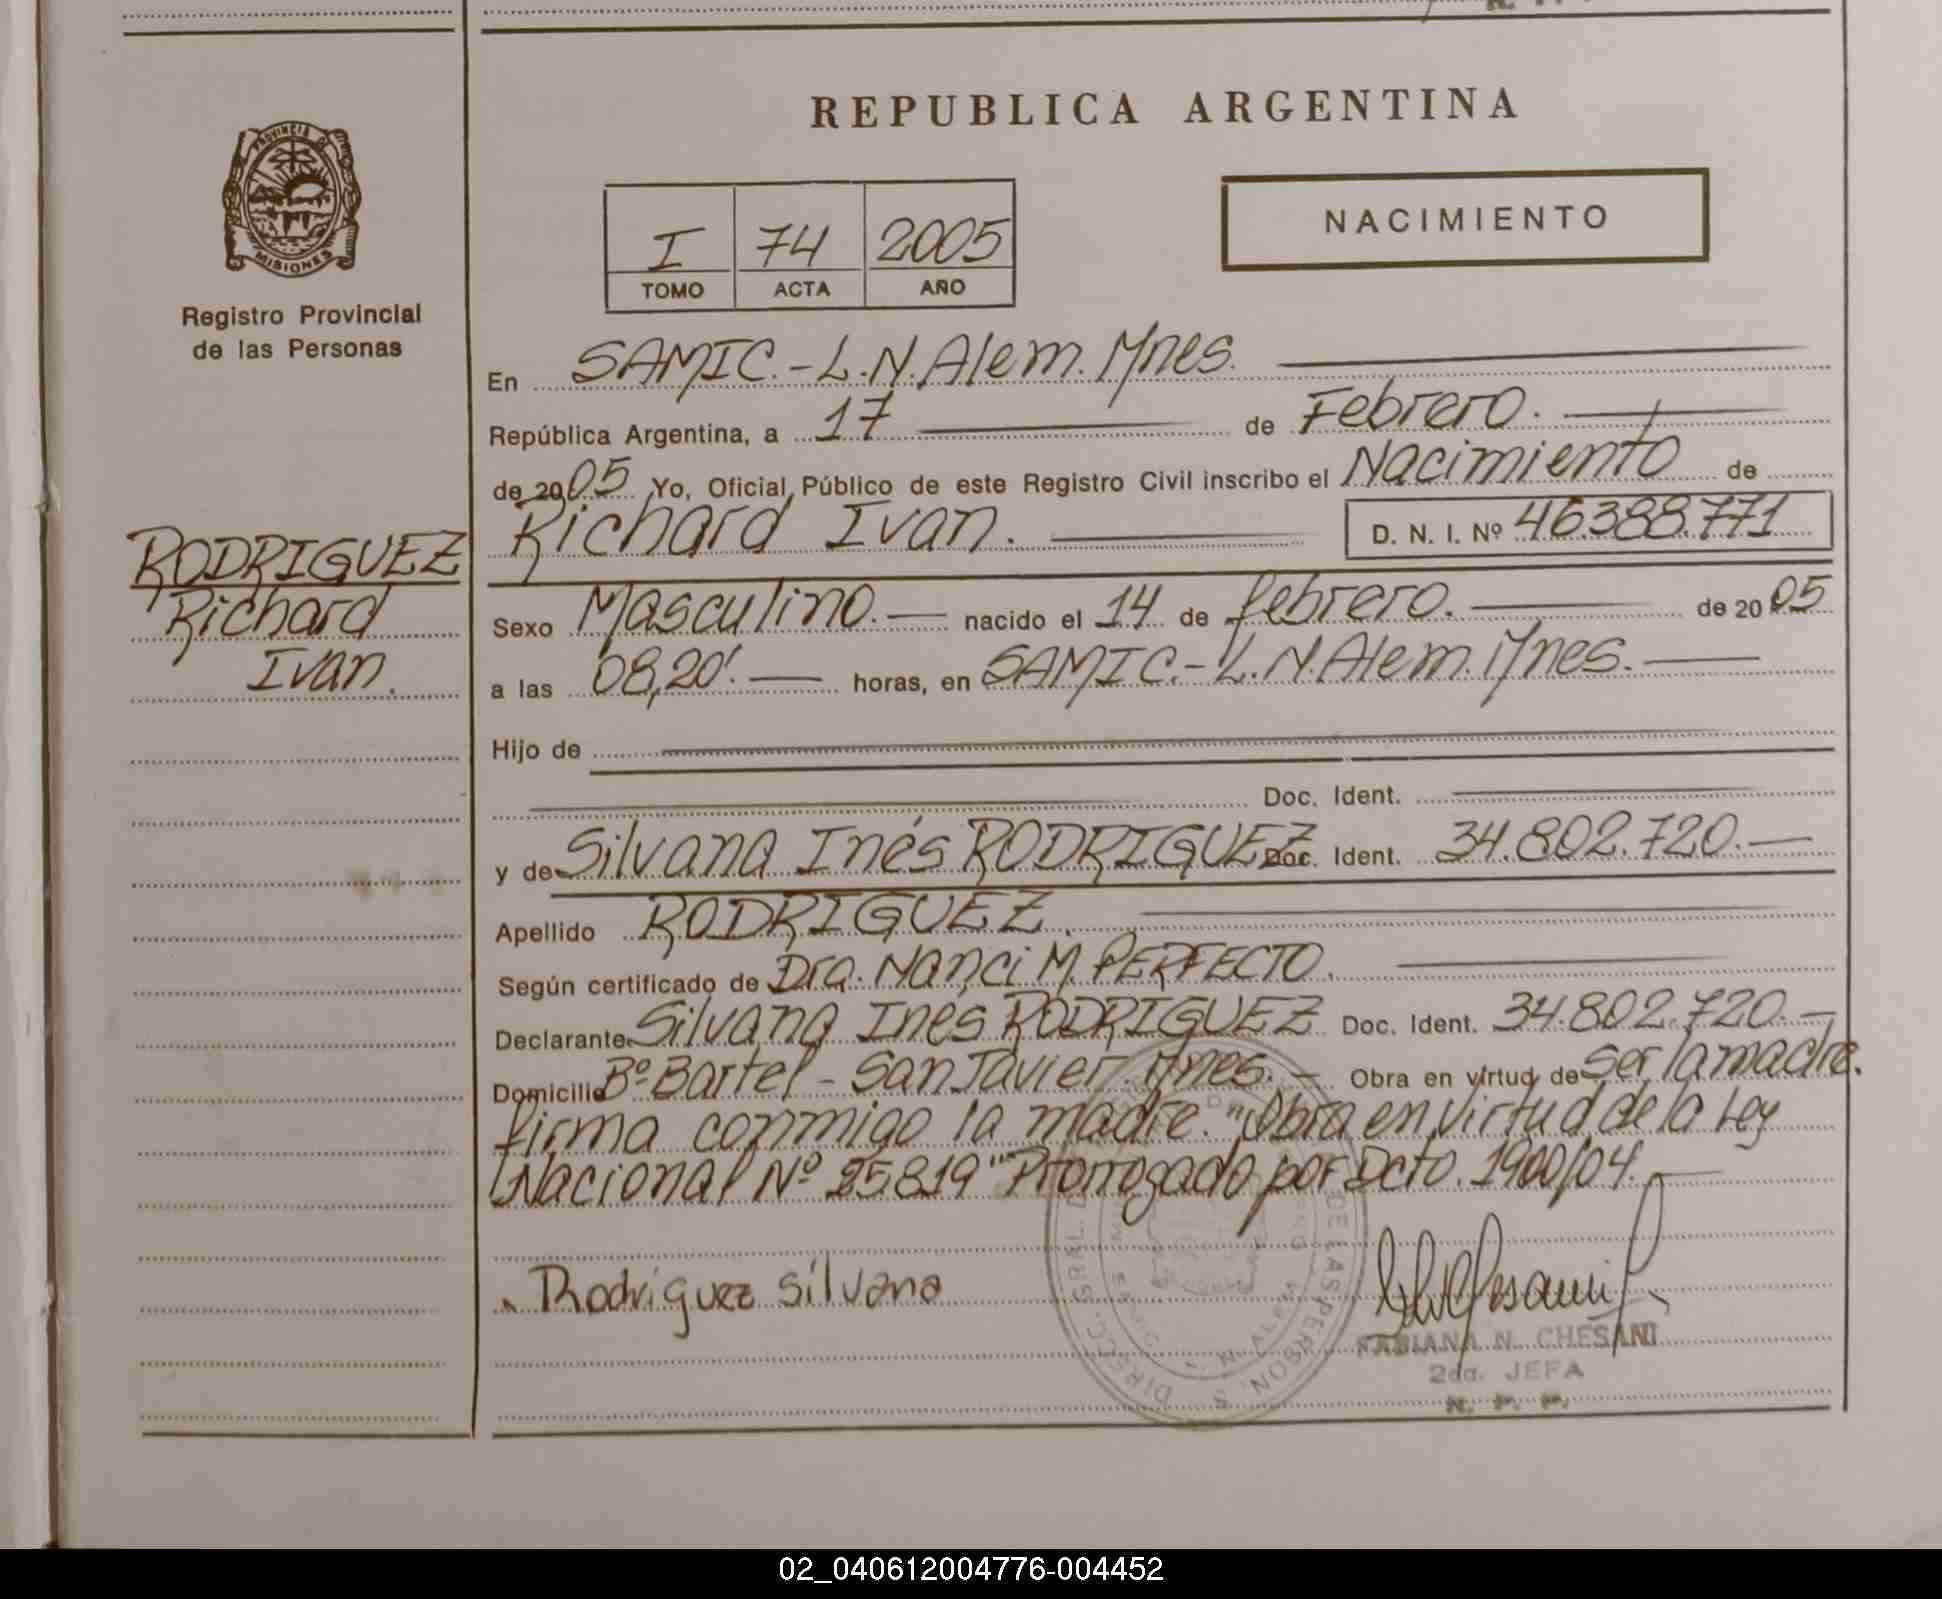 REPUBLICA ARGENTINA
PROVINCIA DE
MISIONES
Registro Provincial
de las Personas
I 74 2005
TOMO ACTA AÑO
NACIMIENTO
En SAMIC.-L.N.Alem.Mnes.
República Argentina, a 17 de Febrero.
de 2005 Yo, Oficial Público de este Registro Civil inscribo el Nacimiento de
Richard Ivan. D. N. I. Nº 46.388.771
RODRIGUEZ
Richard
Ivan.
Sexo Masculino. nacido el 14 de febrero. de 2005
a las 08,20'. horas, en SAMIC.-L.N.Alem.Mnes.
Hijo de
Doc. Ident.
y de Silvana Inés RODRIGUEZ Doc. Ident. 34.802.720.-
Apellido RODRIGUEZ.
Según certificado de Dra. Nanci M. PERFECTO.
Declarante Silvana Inés RODRIGUEZ Doc. Ident. 34.802.720.-
Domicilio Bº Bartel - San Javier. Mnes. - Obra en virtud de ser la madre.
firma conmigo la madre. "Obra en virtud de la Ley
Nacional Nº 25.819" Prorrogado por Dcto. 1900/04.
Rodriguez Silvana
FABIANA N. CHESANI
2da. JEFA
DE LAS PERSONAS
02_040612004776-004452